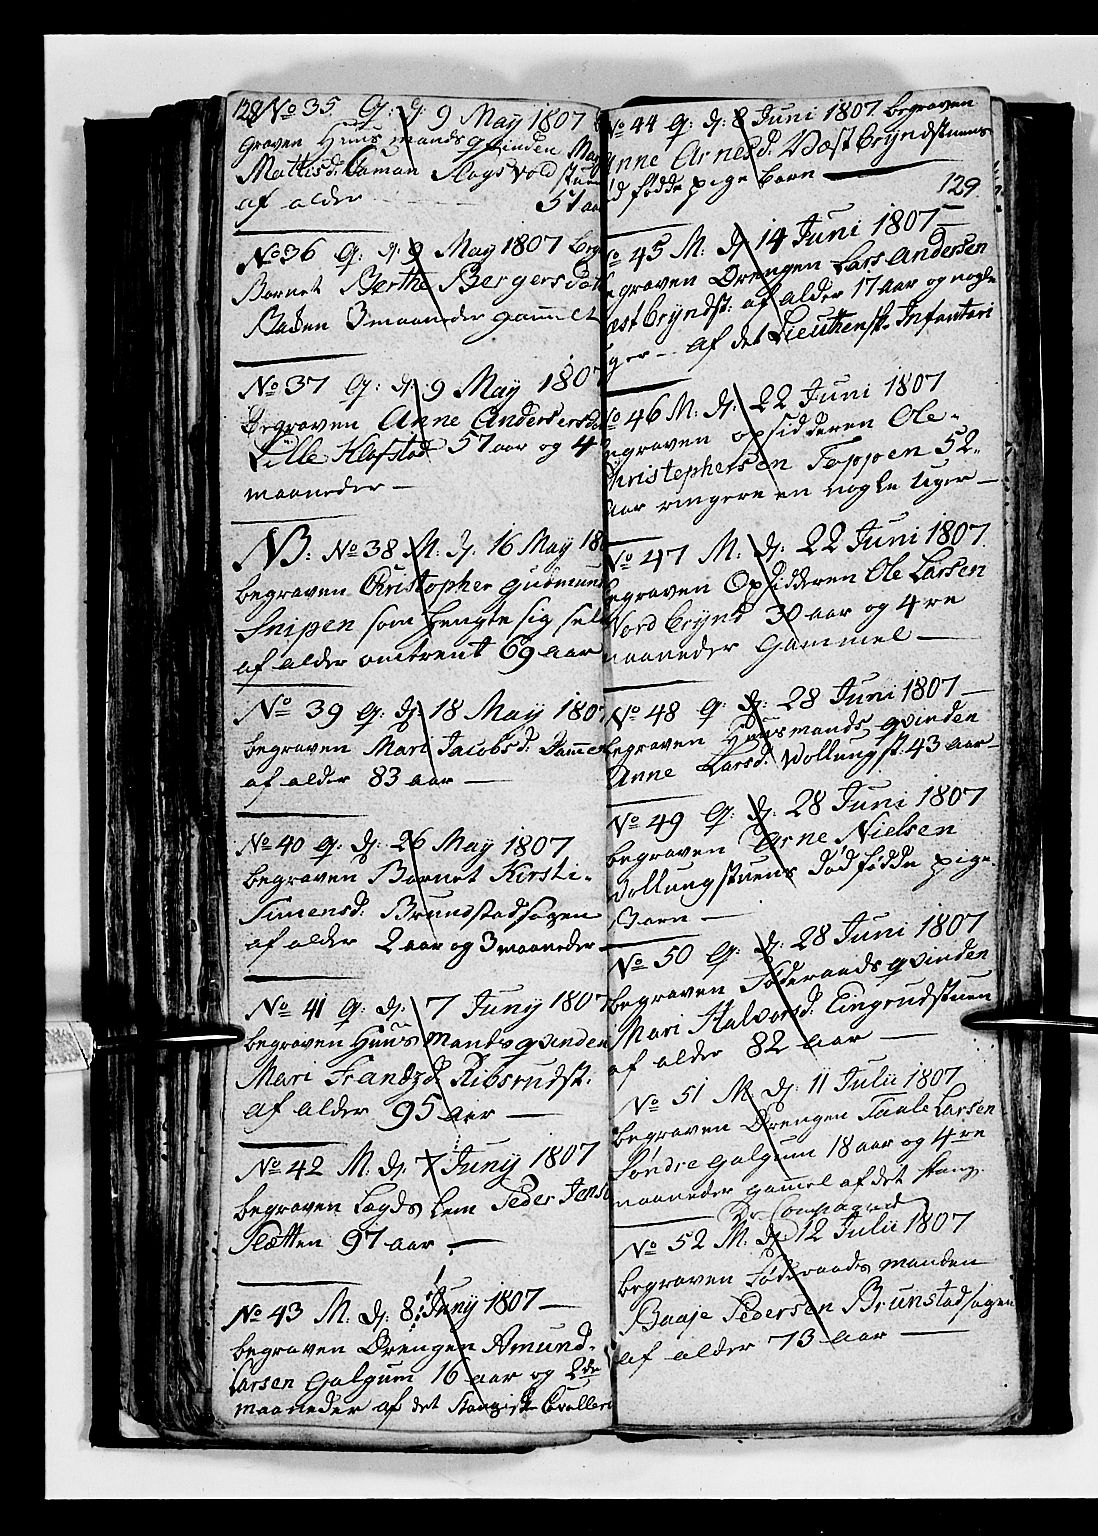 128 No 35 Q: d: 9 May 1807
graven Huus mands qvinden
Mattisd: Slagsvold
af alder 57 aar
No 36 Q: d: 9 May 1807
Barnet Berthe Bergersdat
3 maaneder gammel
No 37 Q: d: 9 May 1807
begraven Anne Andersd
Lille Klafstad 57 aar og 4
maaneder —
NB: No 38 M: d: 16 May
begraven Christopher Gudmund
Snipen som hengte sig selv
af alder omtrent 69 aar
No 39 Q: d: 18 May 1807
begraven Mari Jacobsd:
af alder 83 aar —
No 40 Q: d: 26 May 1807
begraven Barnet Kirsti
Simensd: Brunstadsagen
af alder 2 aar og 3 maaneder
No 41 Q: d: 7 Juny 1807
begraven Huus mands qvinden
Mari Frandzd:
af alder 95 aar —
No 42 M: d: 7 Juny 1807
begraven Lægds lem Peder
Sletten 97 aar —
No 43 M: d: 8: Juny 1807 —
begraven Drengen Amund
Larsen Galgum 16 aar og 2de
maaneder af det
No 44 Q: d: 8 Juni 1807 begraven
Arnesd: Væst bryndstuens
død fødde pige barn —
129
No 45 M: d: 14 Juni 1807 —
graven Drengen Lars Andersen
bryndst: af alder 17 aar og nogle
uger — af det Infanteri
No 46 M: d: 22 Juni 1807
egraven opsidderen Ole
Christophersen Toppen 52
aar ringere en nogle uger —
No 47 M: d: 22 Juni 1807
egraven Opsidderen Ole Larsen
Nord brynd 30 aar og 4re
maaneder Gammel —
No 48 Q: d: 28 Juni 1807 —
begraven Huusmands qvinden
Anne Larsd: 43 aar —
No 49 Q: d: 28 Juni 1807
begraven Arne Nielsen
død fødde pige
Barn —
No 50 Q: d: 28 Juni 1807
begraven Føderaads qvinden
Mari Halvorsd: Eingrudstuen
af alder 82 aar —
No 51 M: d: 11 Julii 1807
begraven Drengen Larsen
Søndre galgum 18 aar og 4re
maaneder gammel af det
Compagnie
No 52 M: d: 12 Julii 1807
begraven Føderaads manden
Baaje Pedersen Brunstadsagen
af alder 73 aar —